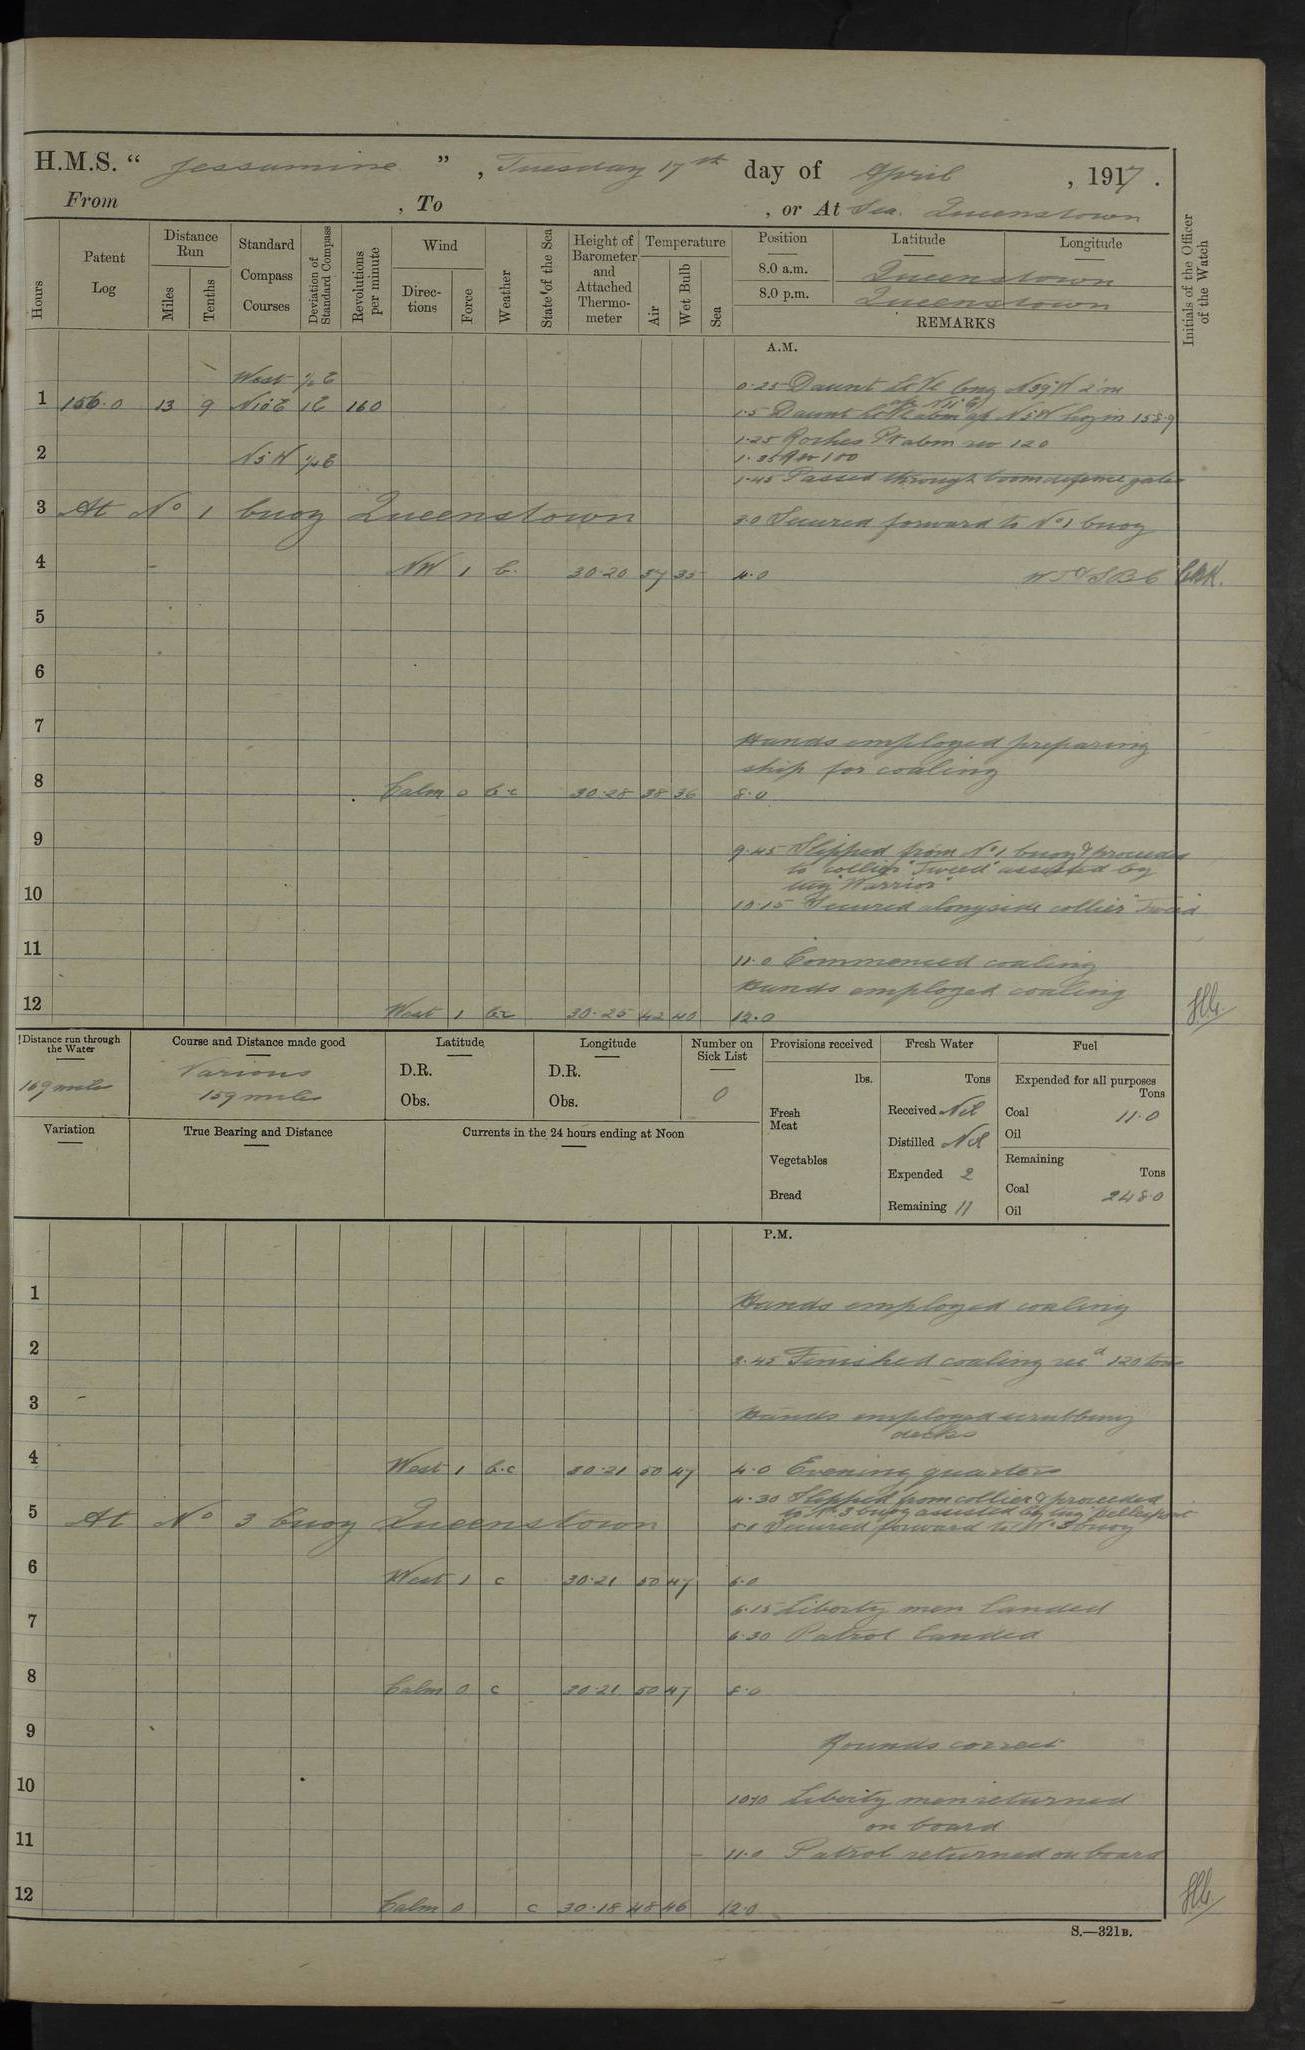 H.M.S. “ Jessamine ”, Tuesday 17th day of April, 1917.
From , To , or At Sea. Queenstown
Hours
Patent Log
Distance Run
Miles
Tenths
Standard Compass Courses
Deviation of Standard Compass
Revolutions per minute
Wind
Directions
Force
Weather
State of the Sea
Height of Barometer and Attached Thermometer
Temperature
Air
Wet Bulb
Sea
Position
Latitude
Longitude
8.0 a.m. Queenstown
8.0 p.m. Queenstown
REMARKS
Initials of the Officer of the Watch
A.M.
West ½ E
0.25 Daunt Lt Vl brng N39W 2'm
1 156.0 13 9 N10E 1E 160
a/c N11E
1.5 Daunt Lt Vl abm a/c N5W log in 158.9
1.25 Roches Pt abm rev 120
2 N5W ½E
1.35 Rev 100
1.45 Passed through boom defence gates
3 At No 1 buoy Queenstown
3.0 Secured forward to No 1 buoy
4 NW 1 b. 30.20 37 35 4.0
5
6
7
Hands employed preparing
ship for coaling
8 Calm 0 b.c 30.28 38 36 8.0
9
9.45 Slipped from No 1 buoy & proceeded
to collier "Tweed" assisted by
tug "Warrior"
10
10.15 Secured alongside collier "Tweed"
11
11.0 Commenced coaling
Hands employed coaling
12 West 1 bc 30.25 42 40 12.0
Distance run through the Water
169 miles
Course and Distance made good
Various
159 miles
Latitude
D.R.
Obs.
Longitude
D.R.
Obs.
Number on Sick List
0
Provisions received
lbs.
Fresh Meat
Vegetables
Bread
Fresh Water
Tons
Received Nil
Distilled Nil
Expended 2
Remaining 11
Fuel
Expended for all purposes
Tons
Coal 11.0
Oil
Remaining
Tons
Coal 248.0
Oil
Variation
True Bearing and Distance
Currents in the 24 hours ending at Noon
P.M.
1
Hands employed coaling
2
2.45 Finished coaling recd 120 tons
3
Hands employed scrubbing
decks
4 West 1 b.c 30.21 50 47 4.0 Evening quarters
4.30 Slipped from collier & proceeded
to No 3 buoy assisted by tug "Hellespont"
5 At No 3 buoy Queenstown
5.1 Secured forward to No 3 buoy
6 West 1 c 30.21 50 47 6.0
6.15 Liberty men landed
7
6.30 Patrol landed
8 Calm 0 c 30.21 50 47 8.0
9
Rounds correct
10
10.10 Liberty men returned
on board
11
11.0 Patrol returned on board
12 Calm 0 c 30.18 48 46 12.0
S.—321B.